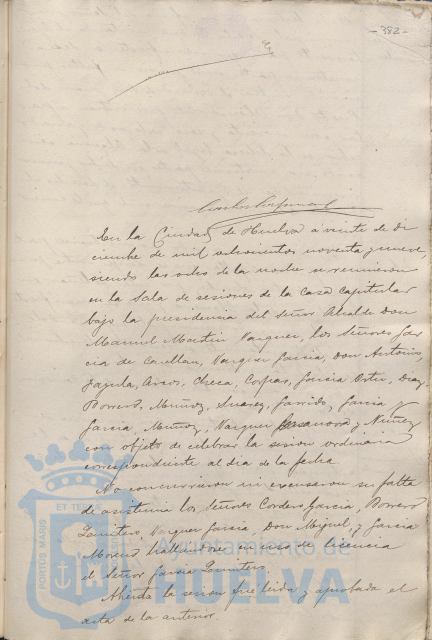 -382-
En la Ciudad de Huelva a veinte de di
ciembre de mil ochocientos noventa y nueve,
siendo las ocho de la noche se reunieron
en la Sala de sesiones de la Casa capitular
bajo la presidencia del Señor Alcalde Don
Manuel Martin Vazquez, los Señores Gar
cia de Casellan, Vazquez Garcia, Don Antonio,
Jazula, Arcos, Checa, Corpas, Garcia Ortiz, Diaz,
Borrero, Muñoz, Suarez, Garrido, Garcia y
Garcia, Muñoz, Vazquez y Nuñez
con objeto de celebrar la sesion ordinaria
correspondiente al dia de la fecha.
No concurrieron ni excusaron su falta
de asistencia los Señores Cordero, Garcia, Borrero
Quintero, Vazquez Garcia, Don Miguel, y Garcia
Moreno hallandose en uso de licencia
el Señor Garcia Quintero.
Abierta la sesion fue leida y aprobada el
acta de la anterior.
PORTUS MARIS
ET TER
Ayuntamiento de
HUELVA